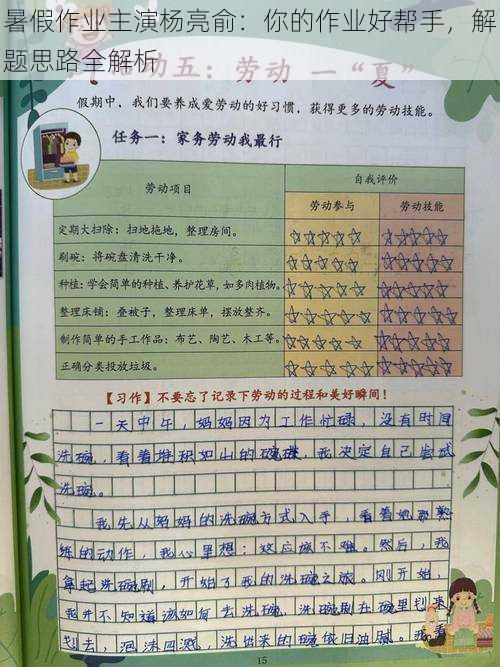 暑假作业主演杨亮俞：你的作业好帮手，解
题思路全解析
动五：劳动 一“夏”
假期中，我们要养成爱劳动的好习惯，获得更多的劳动技能。
任务一：家务劳动我最行
劳动项目
自我评价
劳动参与
劳动技能
定期大扫除：扫地拖地，整理房间。
刷碗：将碗盘清洗干净。
种植：学会简单的种植、养护花草，如多肉植物。
整理床铺：叠被子，整理床单，摆放整齐。
制作简单的手工作品：布艺、陶艺、木工等。
正确分类投放垃圾。
【习作】不要忘了记录下劳动的过程和美好瞬间！
一天中午，妈妈因为工作忙碌，没有时间
洗碗，看着堆积如山的碗碟，我决定自己尝试
洗碗。
我先从妈妈的洗碗方式入手，看着她熟
练的动作，我心里想：这应该不难。然后，我
拿起洗碗刷，开始了我的洗碗之旅。刚开始，
我并不知道该如何去洗碗，洗碗刷在碗里划来
划去，泡沫四溅，洗出来的碗依旧油腻。我看
15